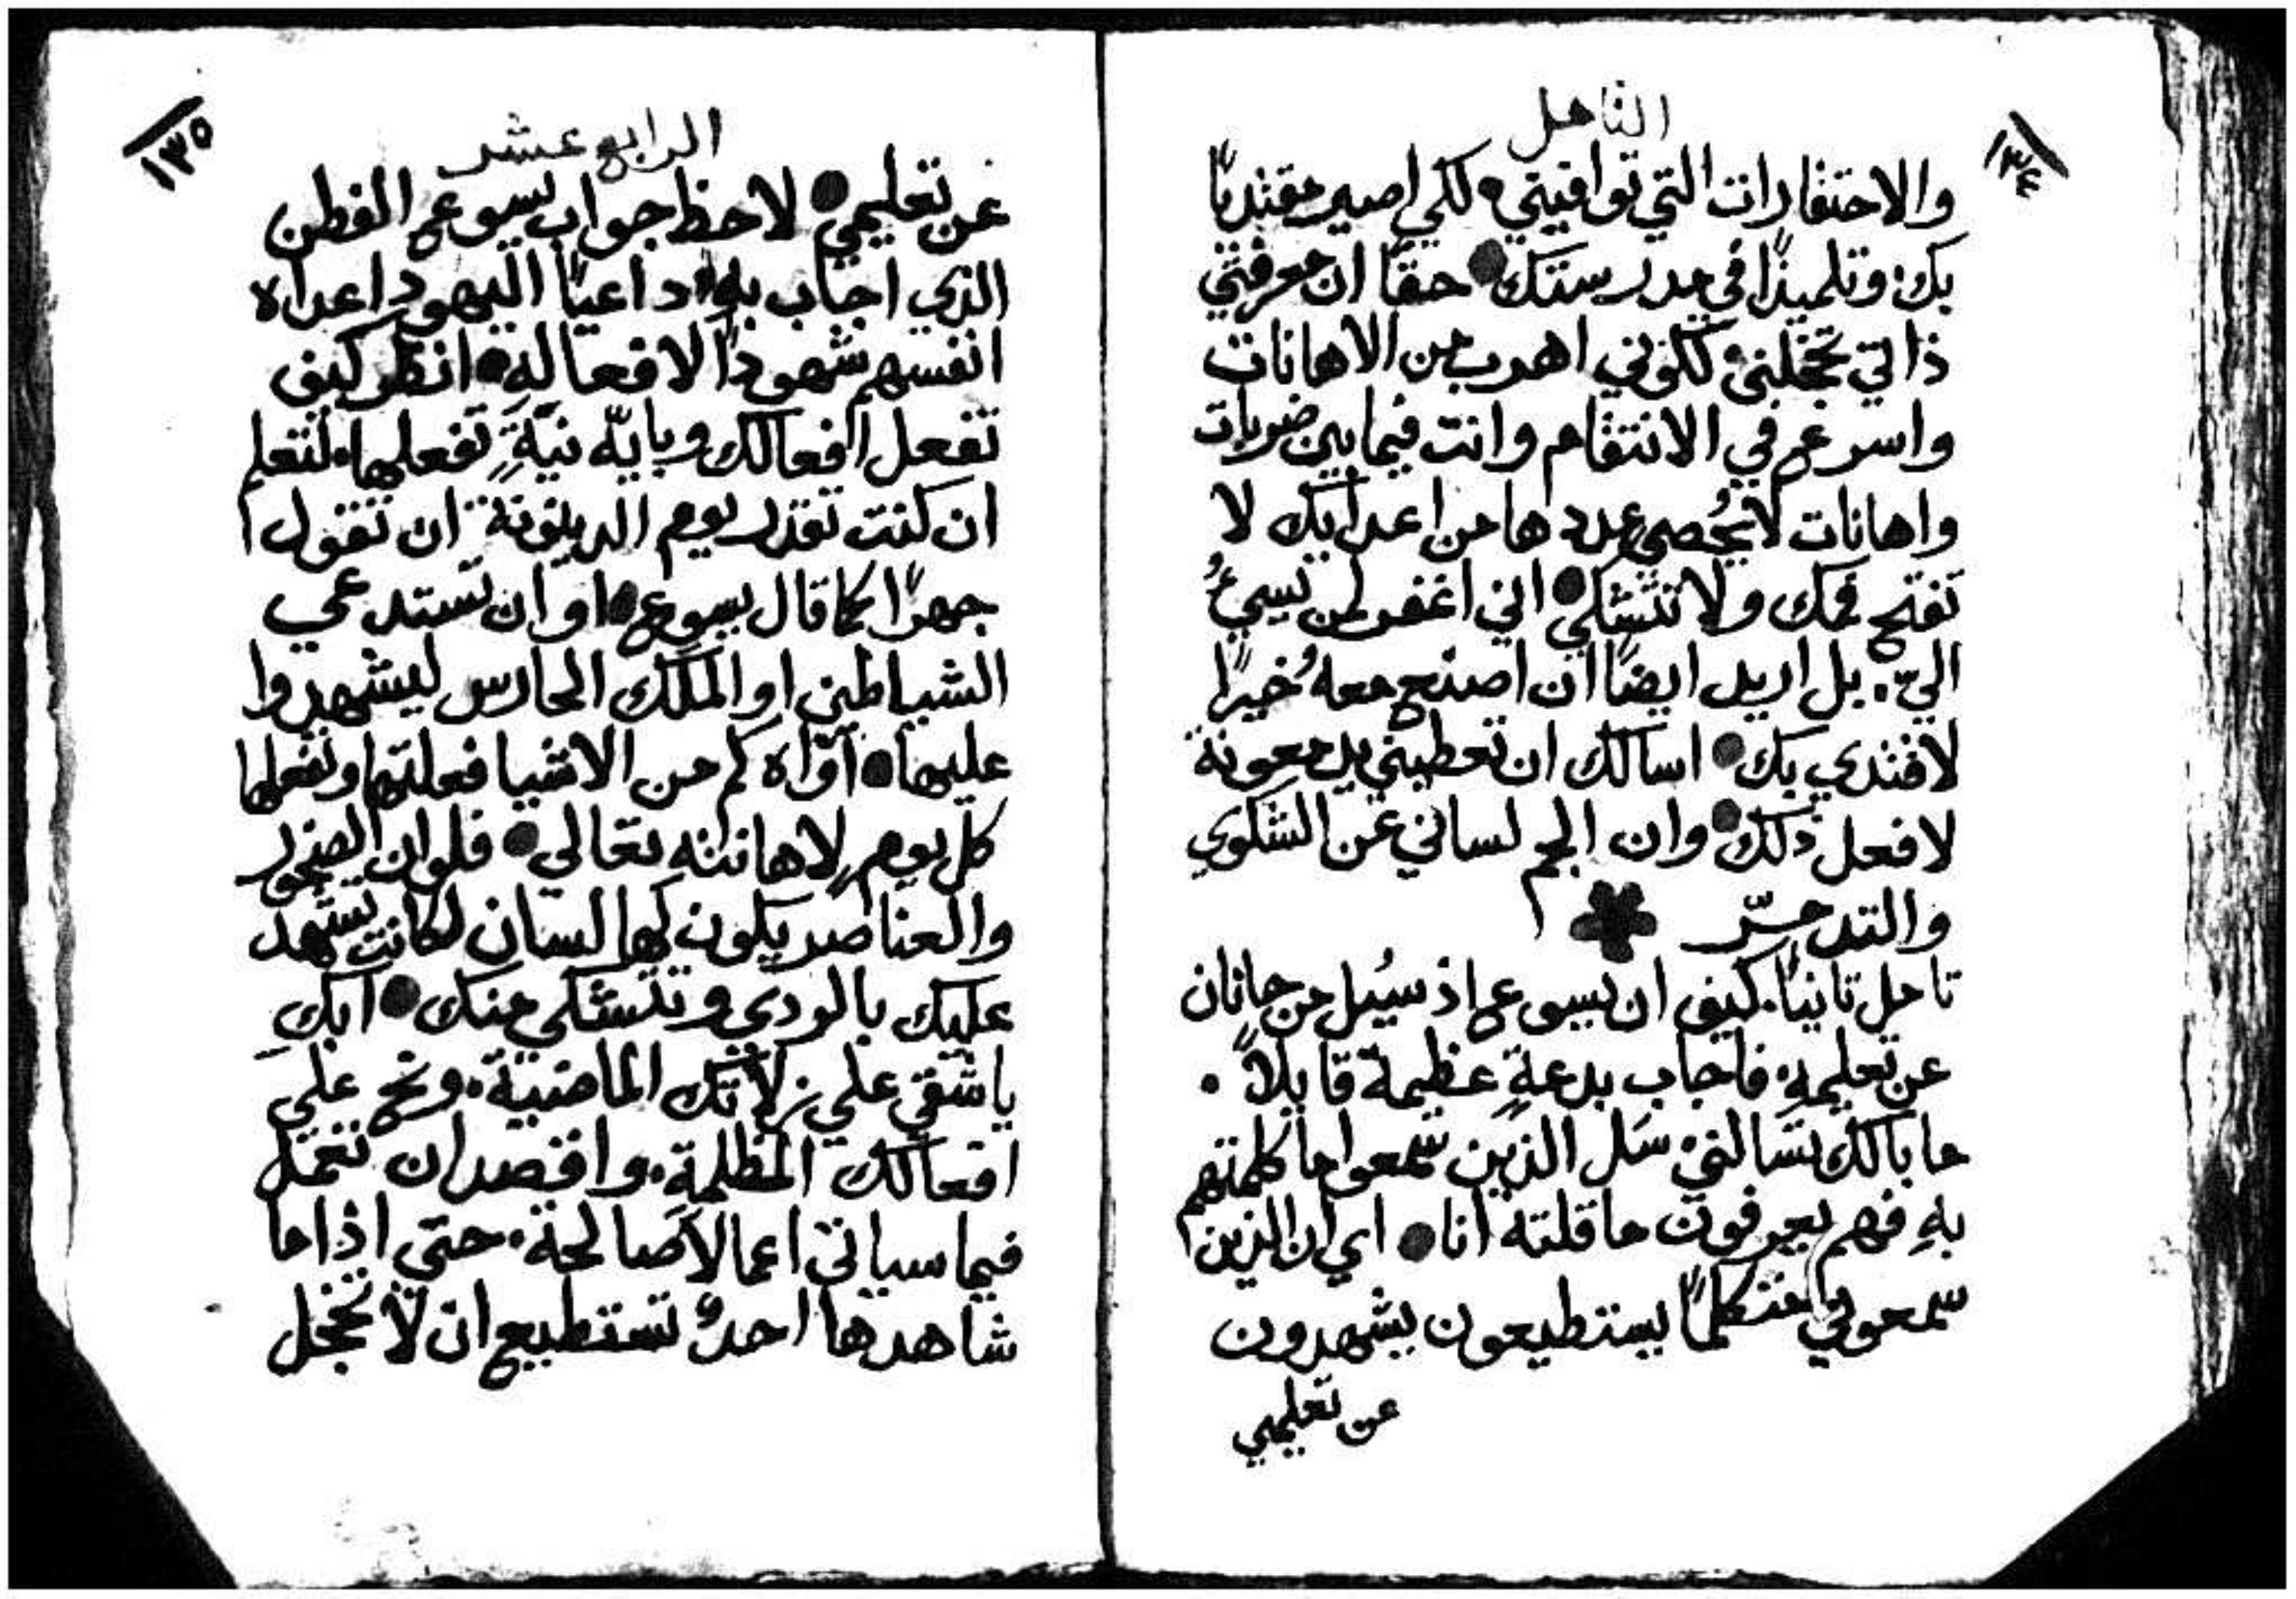 ١٣٤
التامل
والاحتقارات التي توافيني. لكي اصير مقتديًا
بك. وتلميذًا في مدرستك ● حقًا ان معرفتي
ذاتي تخجلني. لكوني اهرب من الاهانات
واسرع في الانتقام وانت فيما بين ضربات
واهانات لا يُحصي عددها من اعدايك لا
تفتح فمك ولا تتشكي ● اني اغفر لمن يسيءُ
اليّ. بل اريد ايضًا ان اصنع معهُ خيرًا
لاقتدي بك ● اسالك ان تعطيني يد معونة
لافعل ذلك ● وان الجم لساني عن الشكوي
والتدمّر
تامل ثانيًا. كيف ان يسوع اذ سُيل من حانان
عن تعليمهِ. فاجاب بدعةٍ عظيمة قايلاً.
ما بالك تسالني. سَل الذين سمعوا ما كلمتهم
بهِ فهم يعرفون ما قلته انا ● اي ان الذين
سمعوني متكلمًا يستطيعون يشهدون
عن تعليمي
١٣٥
الرابع عشر
عن تعليمي ● لاحظ جواب يسوع الفطن
الذي اجاب بهِ. داعيًا اليهود اعداه
انفسهم شهودًا لافعالهِ ● انظر كيف
تفعل افعالك وبايّه نيَّةٍ تفعلها. لتعلم
ان كنت تقدر يوم الدينونة ان تقول
جهرًا كما قال يسوع ● او ان تستدعي
الشياطين او الملاك الحارس ليشهدوا
عليها ● آوّاه كم من الاشيا فعلتها وتفعلها
كل يومٍ لاهانته تعالي ● فلو ان الصخور
والعناصر يكون لها لسان لكانت تشهد
عليك بالردي وتتشكي منك ● ابكِ
يا شقي علي زلاتك الماضية. ونح علي
افعالك المظلمةِ. واقصد ان تعمل
فيما سياتي اعمالاً صالحة. حتي اذا ما
شاهدها احدٌ تستطيع ان لا تخجل